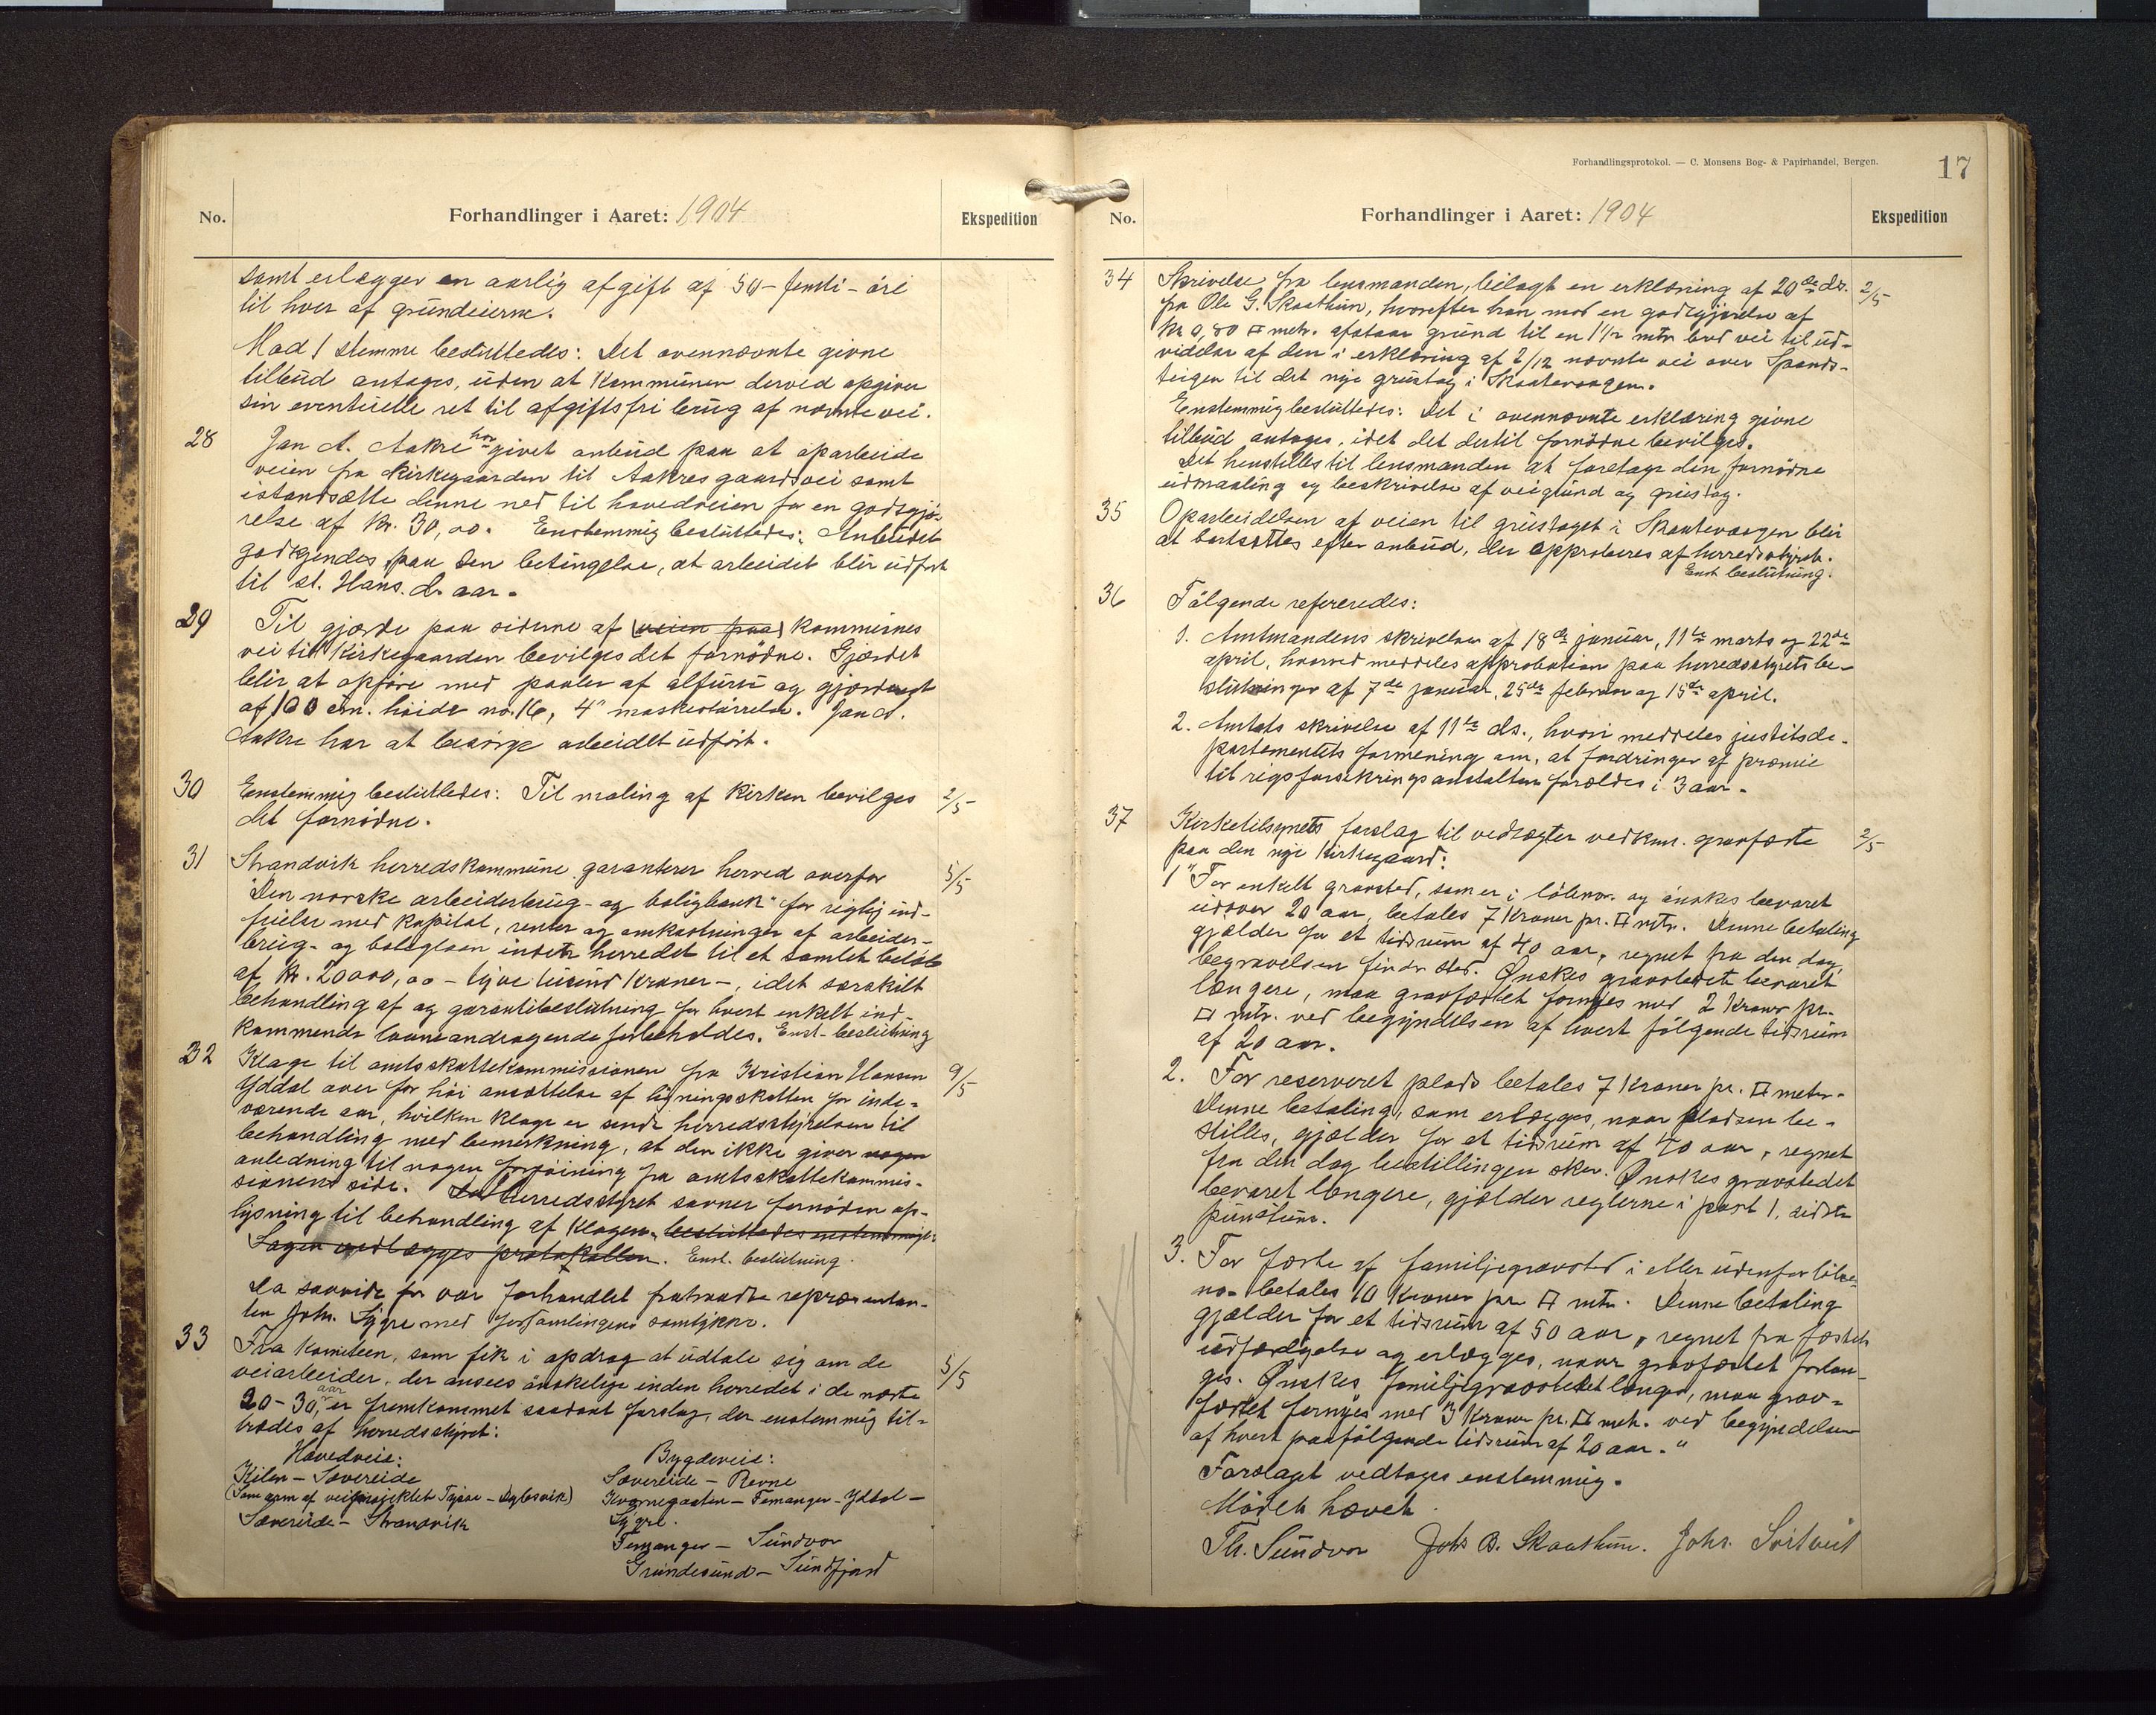 No.
Forhandlinger i Aaret: 1904
Ekspedition
samt erlægger en aarlig afgift af 50 - femti - öre
til hver af grundeierne.
Mod 1 stemme besluttedes: Det ovennævnte givne
tilbud antages, uden at kommunen derved opgiver
sin eventuelle ret til afgiftsfri brug af nævnte vei.
28 Jan A. Aakre har givet anbud paa at oparbeide
veien fra kirkegaarden til Aakres gaardsvei samt
istandsætte denne ned til hovedveien for en godtgjö-
relse af kr. 30,00. Enstemmig besluttedes: Anbudet
godkjendes paa den betingelse, at arbeidet blir udfört
til st. Hans. d. aar.
29 Til gjærde paa siderne af (veien paa) kommunes
vei til kirkegaarden bevilges det fornödne. Gjærdet
blir at opföre med paaler af alfuru og gjærdenet
af 100 cm. höide no. 16, 4" maskestörrelse. Jan A.
Aakre har at besörge arbeidet udfört.
30 Enstemmig besluttedes: Til maling af kirken bevilges 2/5
det fornödne.
31 Strandvik herredskommune garanterer herved overfor 5/5
"Den norske arbeiderbrug- og boligbank" for rigtig ind-
frielse med kapital, renter og omkostninger af arbeider-
brug- og boliglaan inden herredet til et samlet belöb
af kr. 20000,00 - tyve tusind kroner -, idet særskilt
behandling af og garantibeslutning for hvert enkelt ind-
kommende laaneandragende forbeholdes. Enst. beslutning
32 Klage til amtsskattekommissionen fra Kristian Hansen 9/5
Yddal over for höi ansættelse af ligningsskatten for inde-
værende aar, hvilken klage er sendt herredsstyrelsen til
behandling med bemerkning, at den ikke giver nogen
anledning til nogen forföining fra amtsskattekommis-
sionens side. Herredsstyret savner fornöden op-
lysning til behandling af klagen. besluttedes enstemmig:
Sagen vedlægges protokollen. Enst. beslutning.
Da saavidt var forhandlet fratraadte repræsentan-
ten Johs. Lygre med forsamlingens samtykke.
33 Fra komiteen, som fik i opdrag at udtale sig om de 5/5
veiarbeider, der ansees önskelige inden herredet i de næste
20-30 aar, er fremkommet saadant forslag, der enstemmig til-
trædes af herredsstyret:
Hovedveie: Bygdeveie:
Kilen - Sævereide Sævereide - Revne
(Som arm af veiprosjektet Tysse - Eglesvik) Kvernegaaten - Femanger - Yddal -
Sævereide - Strandvik Lygre.
Femanger - Sundvor
Grundesund - Sundfjord
Forhandlingsprotokol. — C. Monsens Bog- & Papirhandel, Bergen.
17
No.
Forhandlinger i Aaret: 1904
Ekspedition
34 Skrivelse fra lensmanden, bilagt en erklæring af 20de ds. 2/5
fra Ole G. Skaathun, hvorefter han mod en godtgjörelse af
kr 0,80 □ metr. afstaar grund til en 1 1/2 mtr bred vei til ud-
videlse af den i erklæring af 2/12 nævnte vei over Spands-
teigen til det nye grustag i Skaatevaagen.
Enstemmig besluttedes: Det i ovennævnte erklæring givne
tilbud antages, idet det dertil fornödne bevilges.
Det henstilles til lensmanden at foretage den fornödne
udmaaling og beskrivelse af veigrund og grustag.
35 Oparbeidelsen af veien til grustaget i Skaatevaagen blir
at bortsættes efter anbud, der approberes af herredsstyret.
Enst beslutning.
36 Fölgende refereredes:
1. Amtmandens skrivelser af 18de januar, 11te marts og 22de
april, hvorved meddeles approbation paa herredsstyrets be-
slutninger af 7de januar, 25de februar og 15de april.
2. Amtets skrivelse af 11te ds., hvori meddeles justitsde-
partementets formening om, at fordringer af præmie
til rigsforsikringsanstalten forældes i 3 aar.
37 Kirketilsynets forslag til vedtægter vedkom. gravfæste 2/5
paa den nye kirkegaard:
1 "For enkelt gravsted, som er i löbenr. og önskes bevaret
udover 20 aar, betales 7 kroner pr. □ mtr. Denne betaling
gjælder for et tidsrum af 40 aar, regnet fra den dag,
begravelsen finder sted. Önskes gravstedet bevaret
længere, maa gravfæstet fornyes med 2 kroner pr.
□ mtr. ved begyndelsen af hvert fölgende tidsrum
af 20 aar.
2. For reserveret plads betales 7 kroner pr. □ meter.
Denne betaling, som erlægges, naar pladsen be-
stilles, gjælder for et tidsrum af 40 aar, regnet
fra den dag bestillingen sker. Önskes gravstedet
bevaret længere, gjælder reglerne i post 1, sidste
punktum.
3. For fæste af familjegravsted i eller udenfor löbe-
no. betales 10 kroner pr □ mtr. Denne betaling
gjælder for et tidsrum af 50 aar, regnet fra fæstets
udfærdigelse og erlægges, naar gravfæstet forlan-
ges. Önskes familjegravstedet længer, maa grav-
fæstet fornyes med 3 kroner pr. □ metr. ved begyndelsen
af hvert paafölgende tidsrum af 20 aar."
Forslaget vedtages enstemmig.
Mödet hævet.
Th. Sundvor Johs B. Skaathun. Johs. Sörtveit